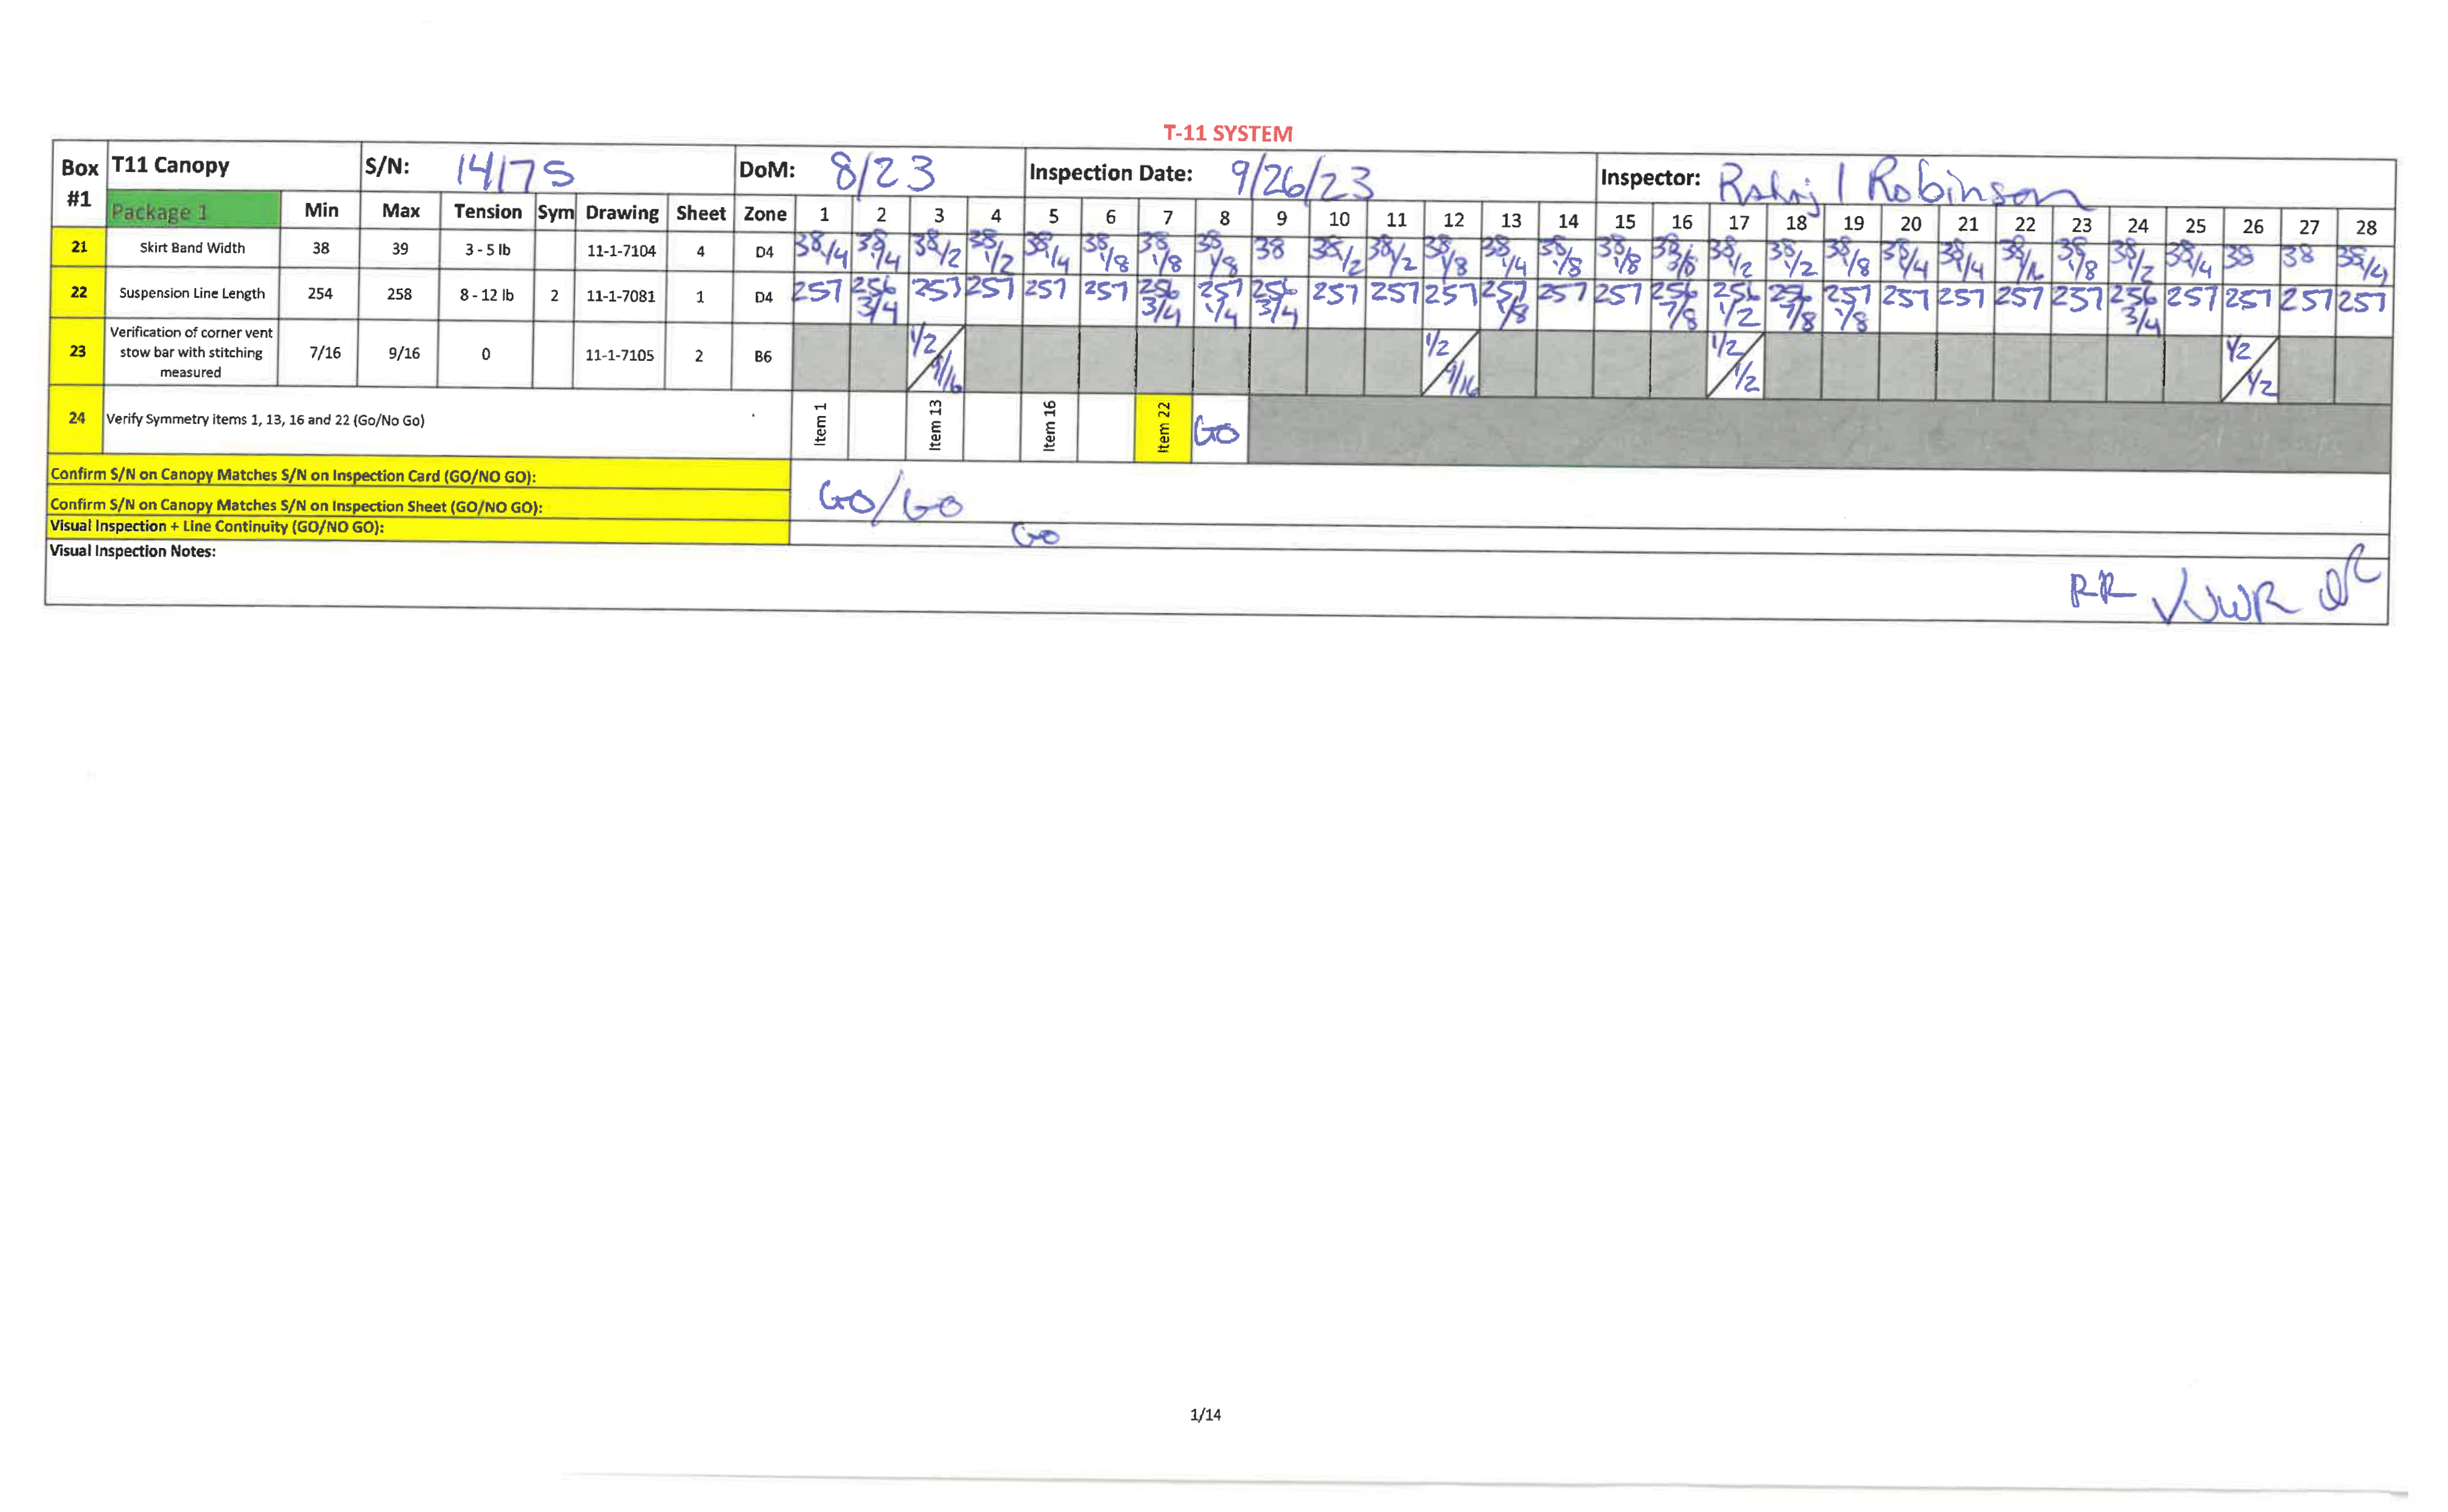 T-11 SYSTEM
Box #1 T11 Canopy S/N: 14175 DoM: 8/23 Inspection Date: 9/26/23 Inspector: Robinson
Package 1 Min Max Tension Sym Drawing Sheet Zone 1 2 3 4 5 6 7 8 9 10 11 12 13 14 15 16 17 18 19 20 21 22 23 24 25 26 27 28
21 Skirt Band Width 38 39 3 - 5 lb 11-1-7104 4 D4 38 1/4 38 1/4 38 1/2 38 1/2 38 1/4 38 1/8 38 1/8 38 1/8 38 38 1/2 38 1/2 38 1/8 38 1/4 38 1/8 38 1/8 38 3/8 38 1/2 38 1/2 38 1/8 38 1/4 38 1/4 38 38 1/8 38 1/2 38 1/4 38 38 38 1/4
22 Suspension Line Length 254 258 8 - 12 lb 2 11-1-7081 1 D4 257 256 3/4 257 257 257 257 256 3/4 257 1/4 256 3/4 257 257 257 257 1/8 257 257 256 7/8 256 1/2 256 7/8 257 1/8 257 257 257 257 256 3/4 257 257 257 257
23 Verification of corner vent stow bar with stitching measured 7/16 9/16 0 11-1-7105 2 B6 1/2 9/16 1/2 9/16 1/2 1/2 1/2 1/2
24 Verify Symmetry items 1, 13, 16 and 22 (Go/No Go) Item 1 Item 13 Item 16 Item 22 GO
Confirm S/N on Canopy Matches S/N on Inspection Card (GO/NO GO):
Confirm S/N on Canopy Matches S/N on Inspection Sheet (GO/NO GO): GO/GO
Visual Inspection + Line Continuity (GO/NO GO): GO
Visual Inspection Notes:
RR
1/14